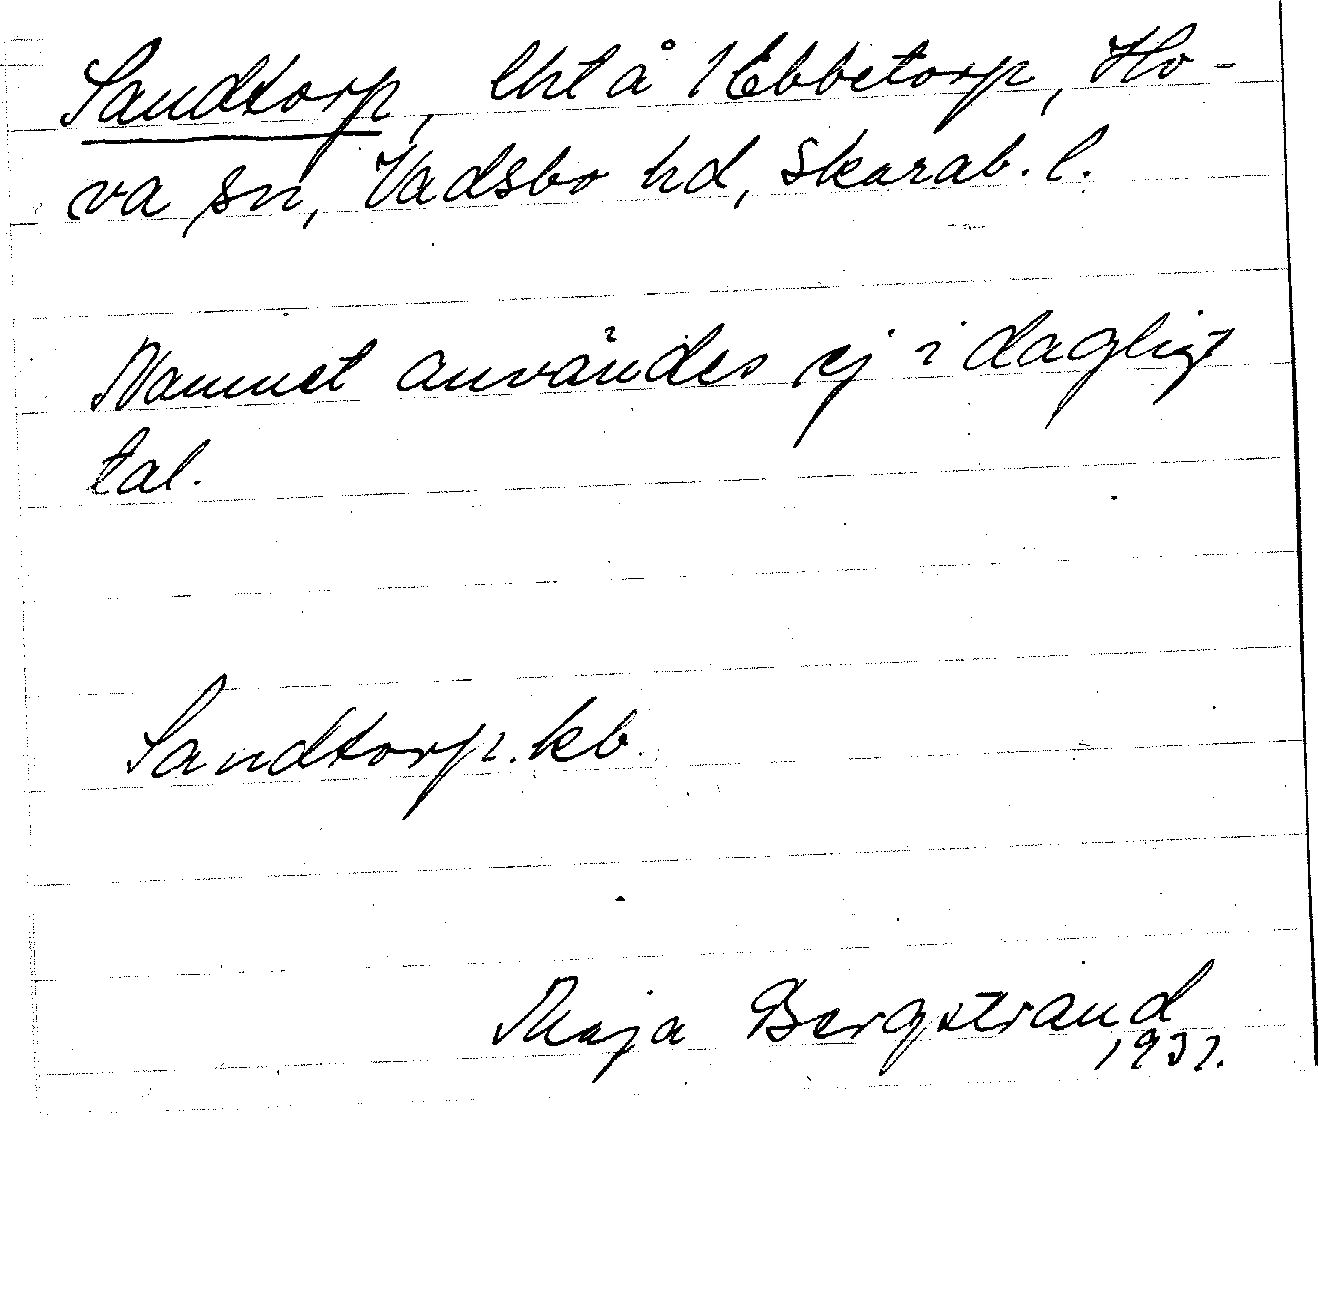 Sandtorp, lht å 1 Ebbetorp, Ho-
va sn, Vadsbo hd, Skarab. l.
Namnet användes ej i dagligt
tal.
Sandtorp. kb.
Maja Bergstrand